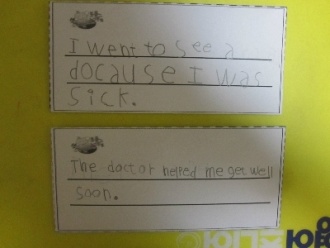 I went to see a
docause I was
sick.
The doctor helped me get well
soon.